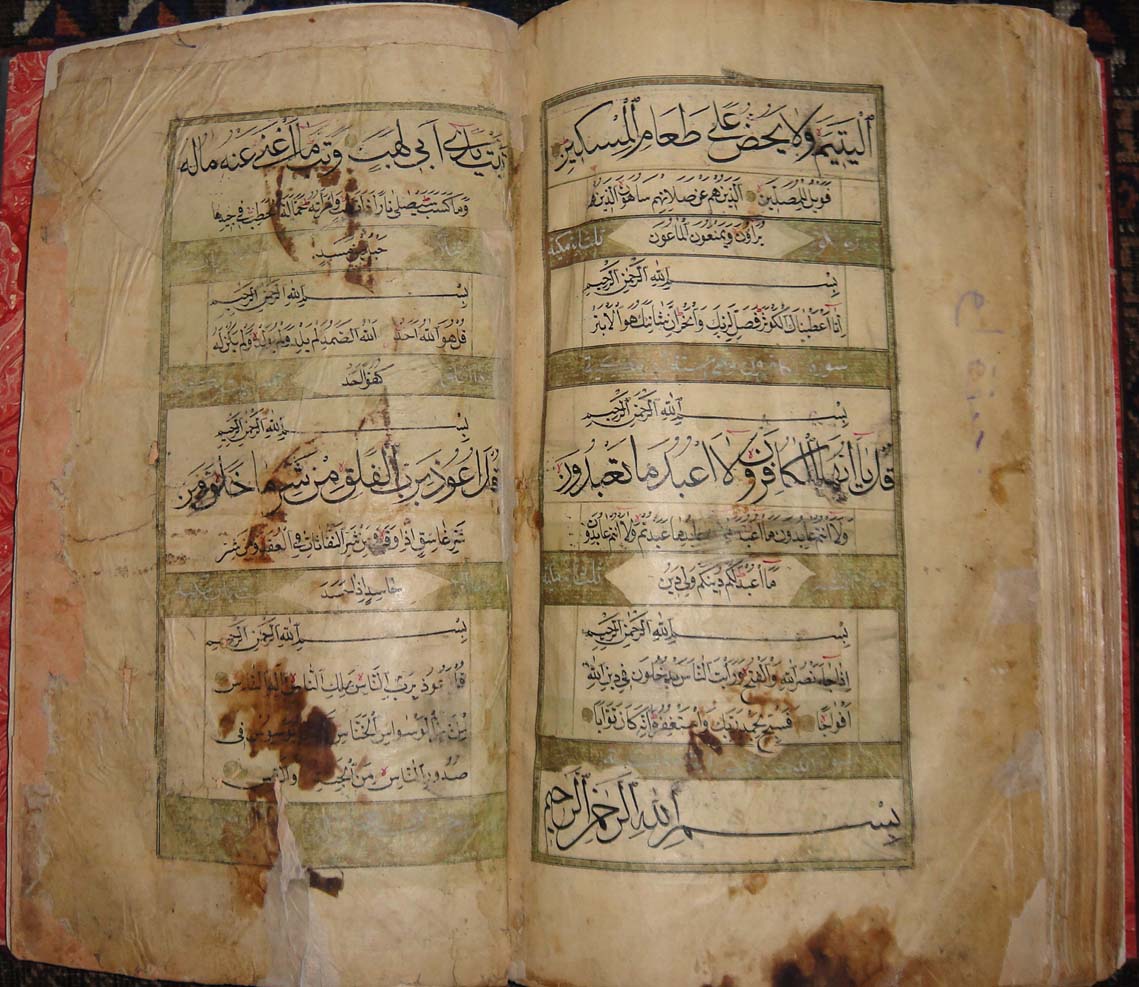 اليتيم ولا يحض على طعام المسكين
فويل للمصلين الذين هم عن صلاتهم ساهون الذين هم
يراؤن ويمنعون الماعون
ثلث ايات مكية
بسم الله الرحمن الرحيم
انا اعطيناك الكوثر فصل لربك وانحر ان شانئك هو الابتر
سورة الكافرون
بسم الله الرحمن الرحيم
قل يا ايها الكافرون لا اعبد ما تعبدون
ولا انتم عابدون ما اعبد ولا انا عابد ما عبدتم ولا انتم عابدون
ما اعبد لكم دينكم ولى دين
بسم الله الرحمن الرحيم
اذا جاء نصر الله والفتح ورايت الناس يدخلون فى دين الله
افواجا فسبح بحمد ربك واستغفره انه كان توابا
بسم الله الرحمن الرحيم
تبت يدا ابى لهب وتب ما اغنى عنه ماله
وما كسب سيصلى نارا ذات لهب وامراته حمالة الحطب فى جيدها
حبل من مسد
بسم الله الرحمن الرحيم
قل هو الله احد الله الصمد لم يلد ولم يولد ولم يكن له
كفوا احد
بسم الله الرحمن الرحيم
قل اعوذ برب الفلق من شر ما خلق ومن
شر غاسق اذا وقب ومن شر النفاثات فى العقد ومن شر
حاسد اذا حسد
بسم الله الرحمن الرحيم
قل اعوذ برب الناس ملك الناس اله الناس
من شر الوسواس الخناس الذى يوسوس فى
صدور الناس من الجنة والناس